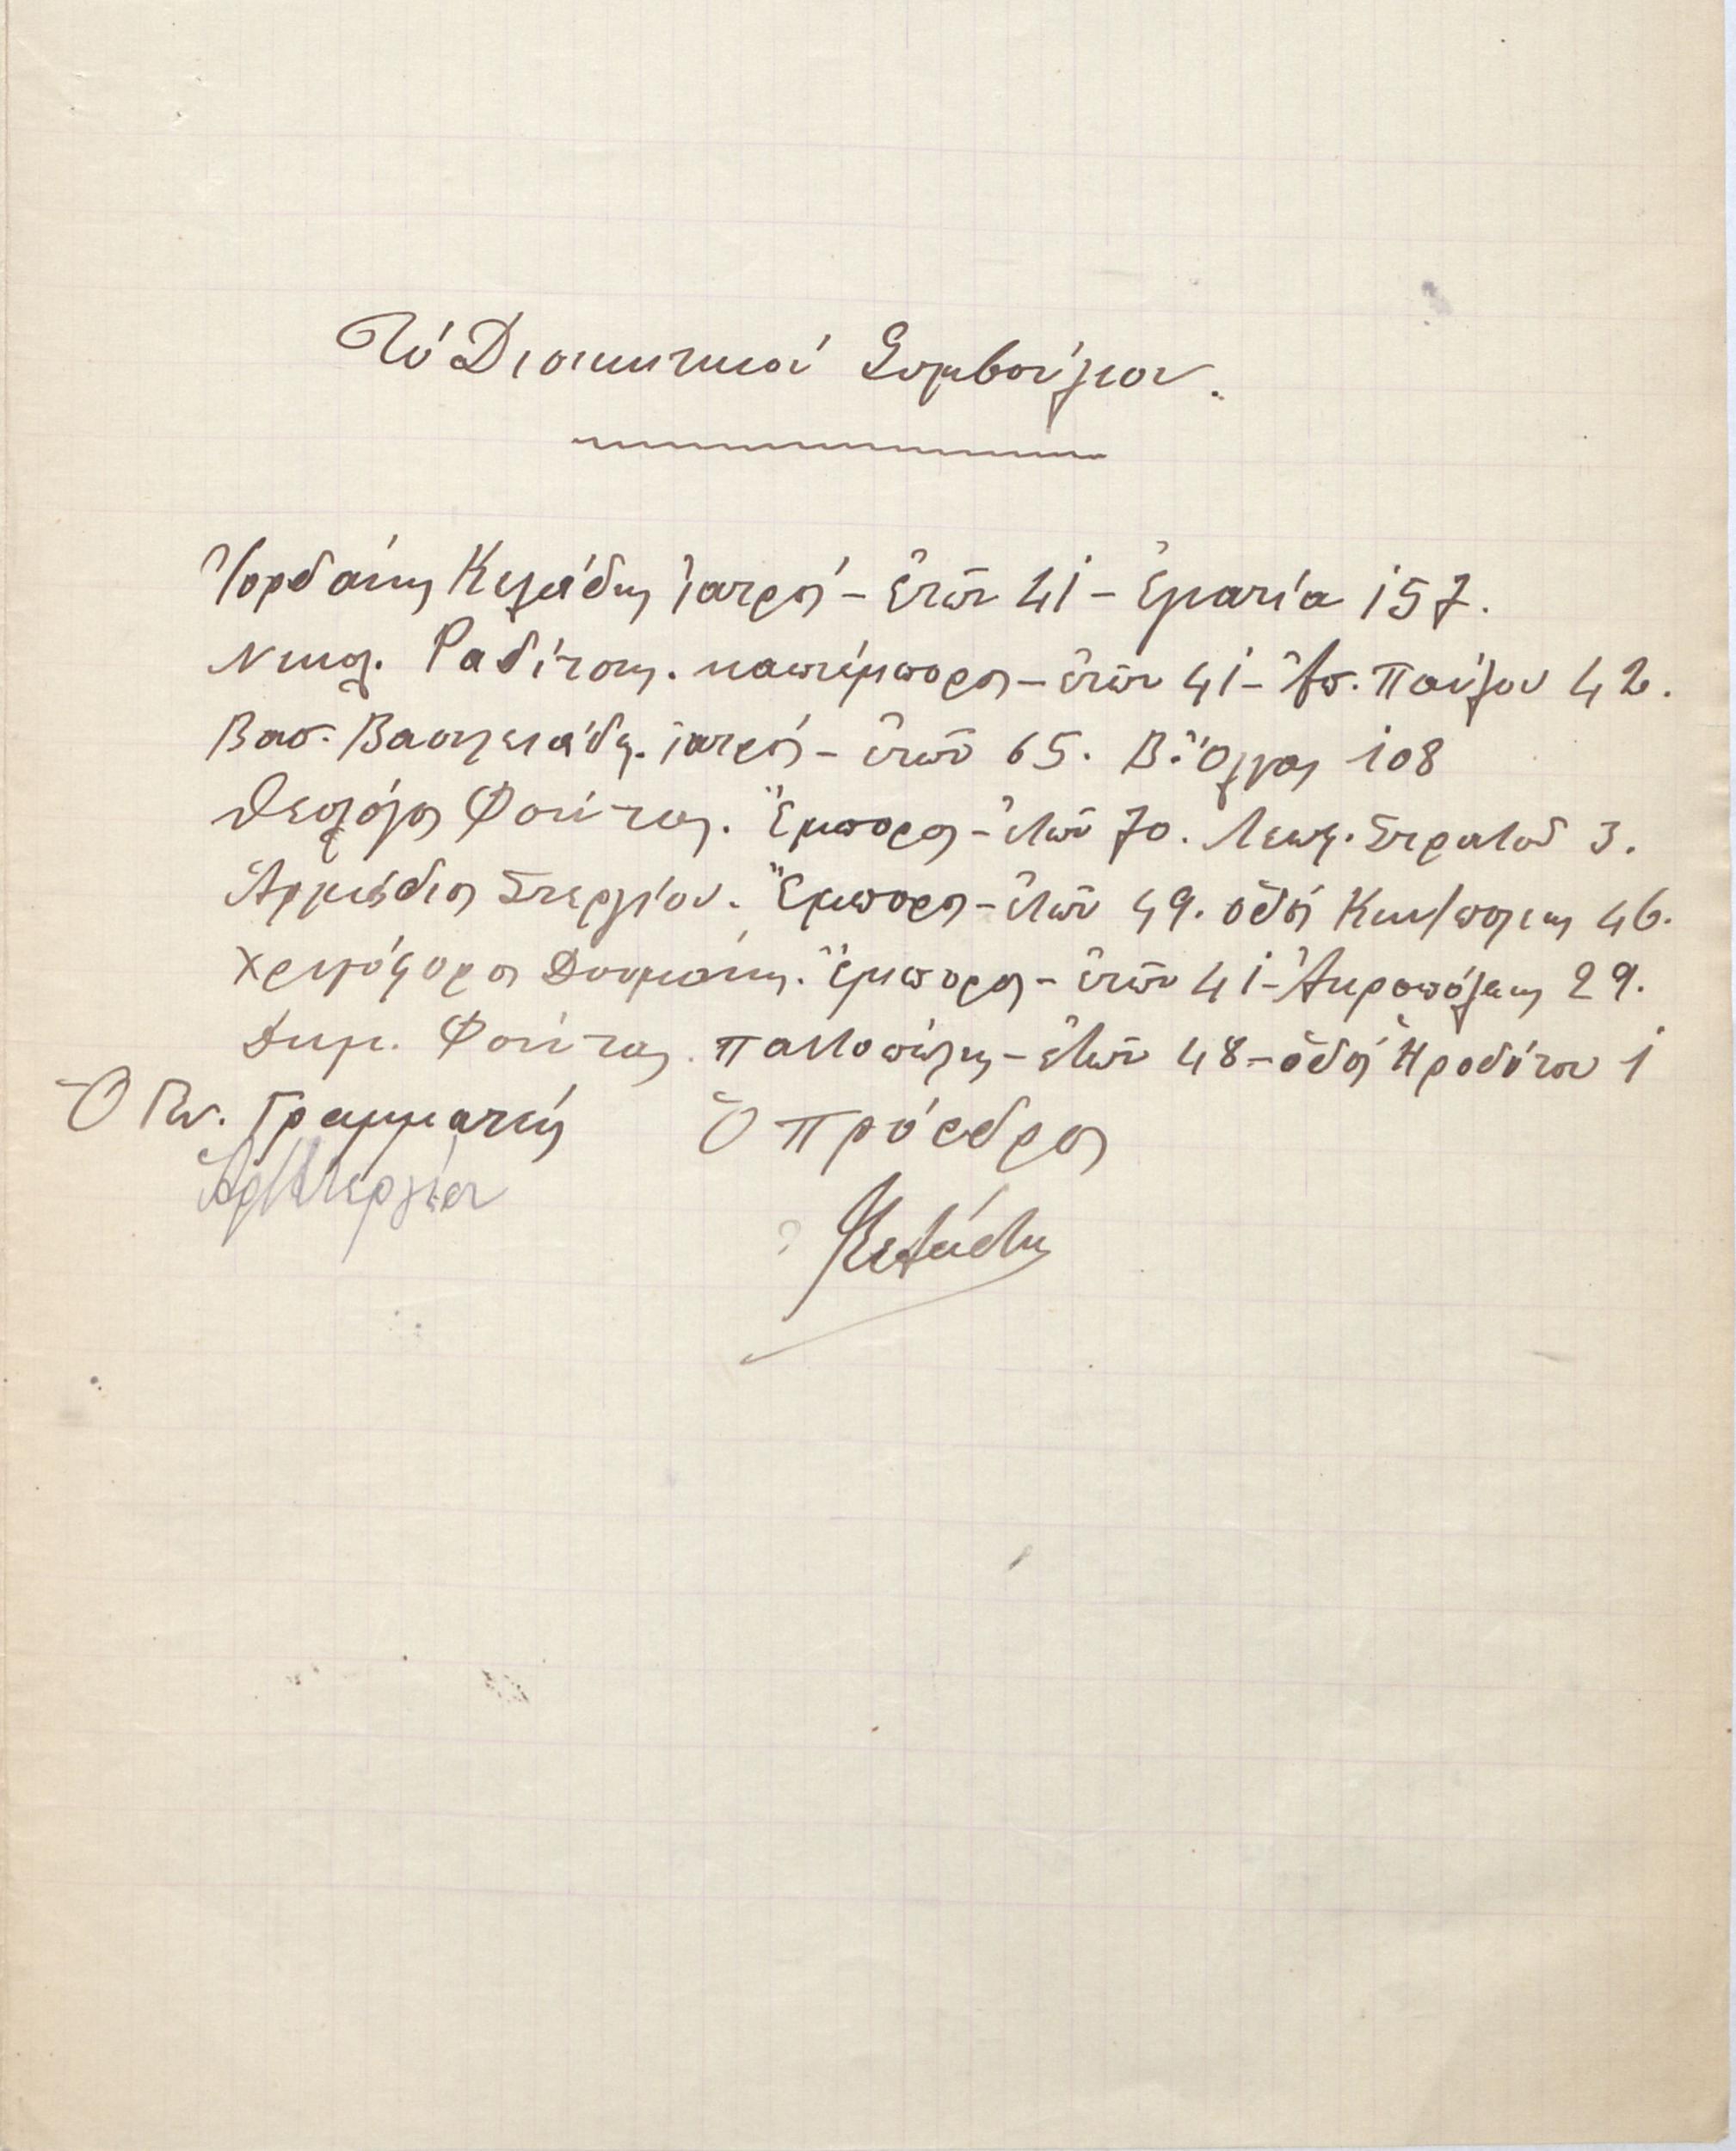 Τό Διοικητικόν Συμβούλιον.
Ἰορδάνης Κελιάδης ἰατρός – ἐτῶν 41 – Ἐγνατία 157.
Νικολ. Ραδίτσης. καπνέμπορος – ἐτῶν 41 – Ἀπ. Παύλου 42.
Βασ. Βασιλειάδης. ἰατρός – ἐτῶν 65. Β. Ὄλγας 108
Θεολόγος Φούντας. Ἔμπορος – ἐτῶν 70. Λεωφ. Στρατοῦ 3.
Ἀρχιμήδης Στεργίου. Ἔμπορος – ἐτῶν 49. ὁδός Κων/πόλεως 46.
Χριστόφορος Δουμάνης. Ἔμπορος – ἐτῶν 41 – Ἀκροπόλεως 29.
Δημ. Φούντας. παντοπώλης – ἐτῶν 48 – ὁδός Ἡροδότου 1
Ὁ Γεν. Γραμματεύς Ὁ Πρόεδρος
Στεργίου